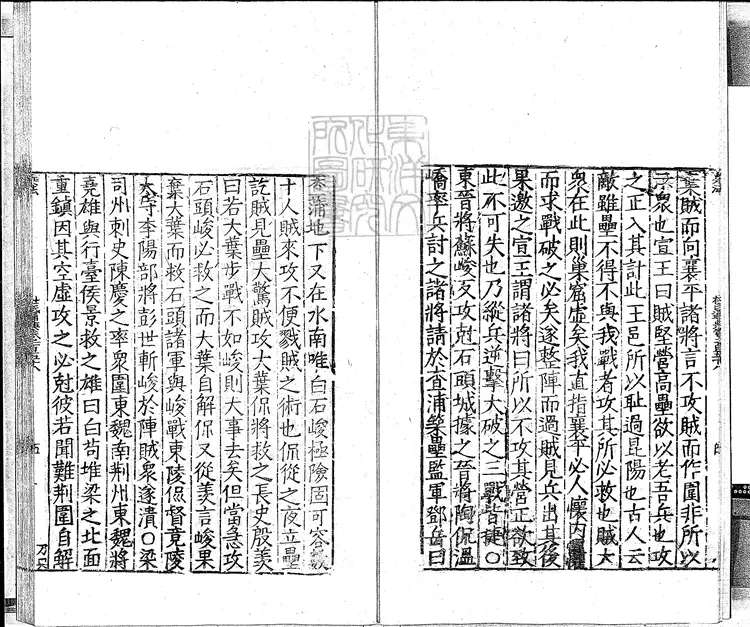 棄賊而向襄平諸將言不攻賊而作圍非所以
示衆也宣王曰賊堅營高壘欲以老吾兵也攻
之正入其計此王邑所以耻過昆陽也古人云
敵雖壘不得不與我戰者攻其所必救也賊大
衆在此則巢窟虛矣我直指襄平必人懷内懼
而求戰破之必矣遂整陣而過賊見兵出其後
果邀之宣王謂諸將曰所以不攻其營正欲致
此不可失也乃縱兵逆擊大破之三戰皆捷○
東晉將蘇峻反攻尅石頭城據之晉將陶侃溫
嶠率兵討之諸將請於查浦築壘監軍鄧岳曰
查浦地下又在水南唯白石峻極險固可容數
十人賊來攻不便戮賊之術也侃從之夜立壘
訖賊見壘大驚賊攻大葉侃將救之長史殷羨
曰若大葉步戰不如峻則大事去矣但當急攻
石頭峻必救之而大葉自解侃又從羨言峻果
棄大葉而救石頭諸軍與峻戰東陵侃督竟陵
太守李陽部將彭世斬峻於陣賊衆遂潰○梁
司州刺史陳慶之率衆圍東魏南荆州東魏將
堯雄與行臺侯景救之雄曰白苟堆梁之北面
重鎮因其空虛攻之必尅彼若聞難荆圍自解